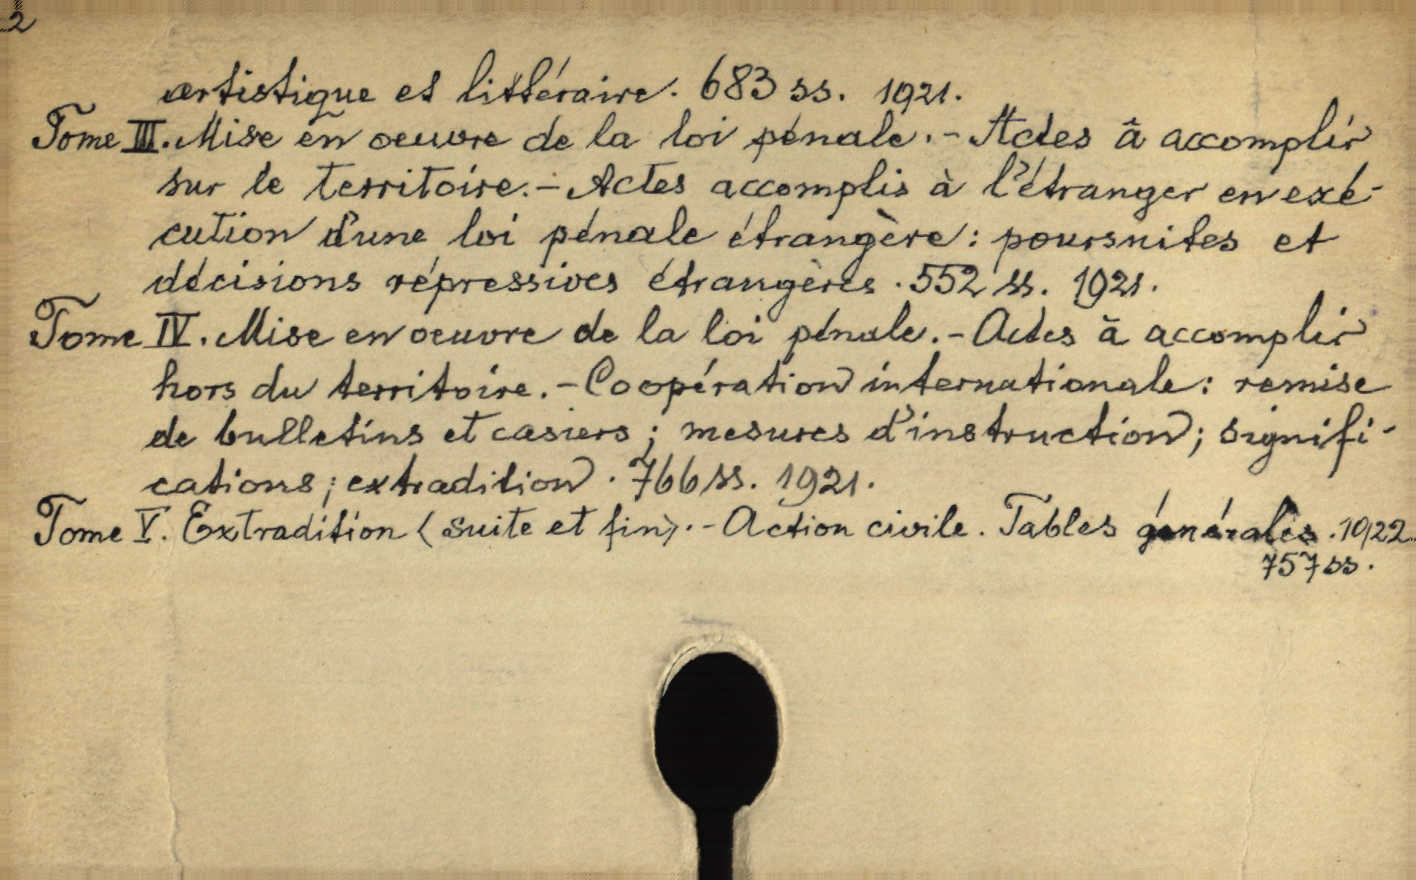 2
artistique et littéraire. 683 ss. 1921.
Tome III. Mise en oeuvre de la loi pénale. - Actes à accomplir
sur le territoire. - Actes accomplis à l'étranger en exé-
cution d'une loi pénale étrangère: poursuites et
décisions répressives étrangères. 552 ss. 1921.
Tome IV. Mise en oeuvre de la loi pénale. - Actes à accomplir
hors du territoire. - Coopération internationale: remise
de bulletins et casiers; mesures d'instruction; signifi-
cations; extradition. 766 ss. 1921.
Tome V. Extradition (suite et fin). - Action civile. Tables générales. 1922.
757 ss.